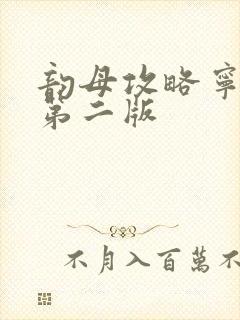 韵母攻略寧
第二版
不月入百萬不